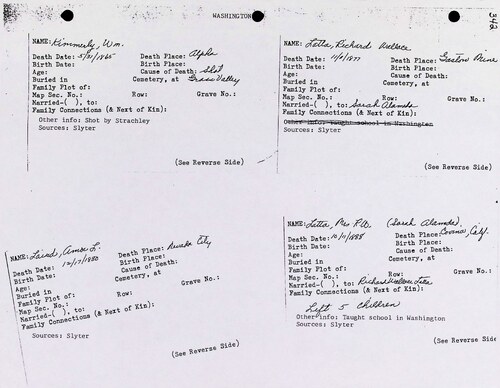 WASHINGTON
342
NAME: Kimmerly, Wm.
Death Date: 5/21/1865 Death Place: Alpha
Birth Date: Birth Place:
Age: Cause of Death: Shot
Buried in Cemetery, at Grass Valley
Family Plot of:
Map Sec. No.: Row: Grave No.:
Married-( ), to:
Family Connections (& Next of Kin):
Other info: Shot by Strachley
Sources: Slyter
(See Reverse Side)
NAME: Letts, Richard Wallace
Death Date: 11/9/1877 Death Place: Gaston Mine
Birth Date: Birth Place:
Age: Cause of Death:
Buried in Cemetery, at
Family Plot of:
Map Sec. No.: Row: Grave No.:
Married-( ), to: Sarah Alamda
Family Connections (& Next of Kin):
Other info: Taught school in Washington
Sources: Slyter
(See Reverse Side)
NAME: Laird, Amos L.
Death Date: 12/17/1880 Death Place: Nevada City
Birth Date: Birth Place:
Age: Cause of Death:
Buried in Cemetery, at
Family Plot of:
Map Sec. No.: Row: Grave No.:
Married-( ), to:
Family Connections (& Next of Kin):
Sources: Slyter
(See Reverse Side)
NAME: Letts, Mrs R.W. (Sarah Alamda)
Death Date: 10/11/1888 Death Place: Corona, Calif.
Birth Date: Birth Place:
Age: Cause of Death:
Buried in Cemetery, at
Family Plot of:
Map Sec. No.: Row: Grave No.:
Married-( ), to: Richard Wallace Letts
Family Connections (& Next of Kin):
Left 5 children
Other info: Taught school in Washington
Sources: Slyter
(See Reverse Side)